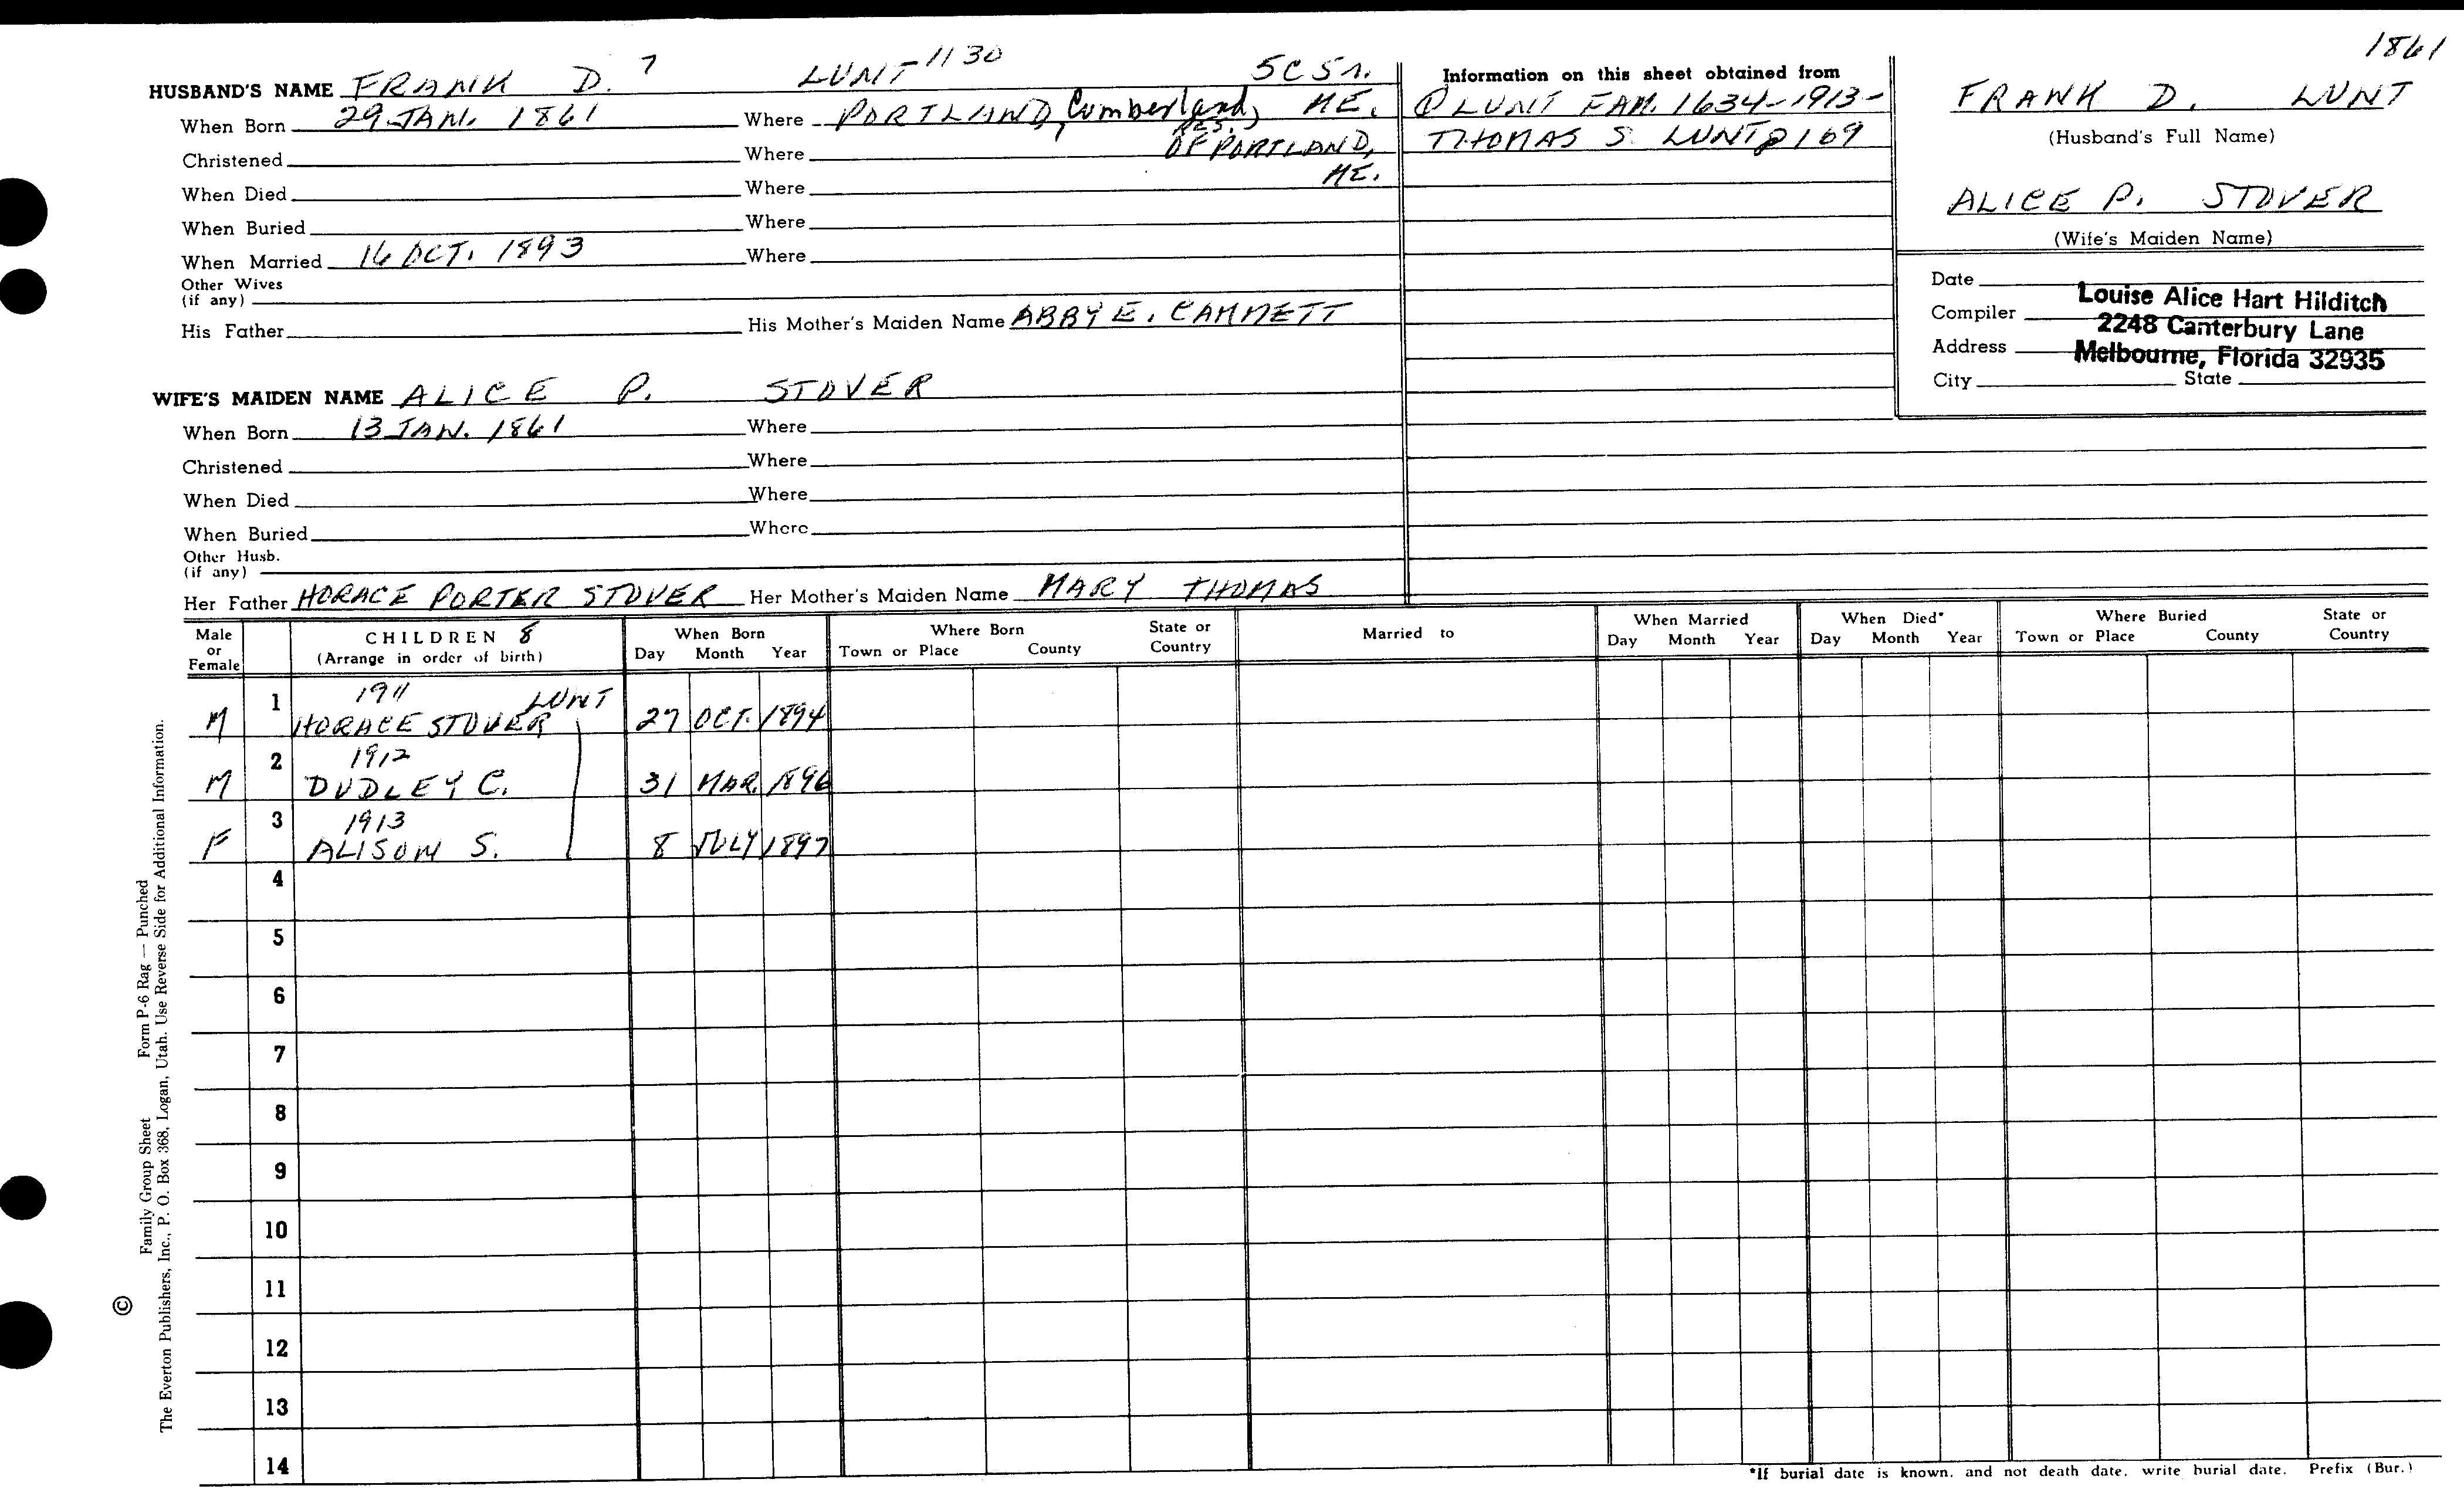 1861
HUSBAND'S NAME FRANK D. 7 LUNT 1130 5C5n.
When Born 29 JAN. 1861 Where PORTLAND, Cumberland, ME.
Christened Where RES. OF PORTLAND, ME.
When Died Where
When Buried Where
When Married 16 OCT. 1893 Where
Other Wives
(if any)
His Father His Mother's Maiden Name ABBY E. CAMMETT
Information on this sheet obtained from
① LUNT FAM. 1634-1913-
THOMAS S. LUNT p 169
FRANK D. LUNT
(Husband's Full Name)
ALICE P. STOVER
(Wife's Maiden Name)
Date
Compiler Louise Alice Hart Hilditch
Address 2248 Canterbury Lane
Melbourne, Florida 32935
City State
WIFE'S MAIDEN NAME ALICE P. STOVER
When Born 13 JAN. 1861 Where
Christened Where
When Died Where
When Buried Where
Other Husb.
(if any)
Her Father HORACE PORTER STOVER Her Mother's Maiden Name MARY THOMAS
Male or Female
CHILDREN 8
(Arrange in order of birth)
When Born
Day Month Year
Where Born
Town or Place County State or Country
Married to
When Married
Day Month Year
When Died*
Day Month Year
Where Buried
Town or Place County State or Country
1 1911 LUNT
M HORACE STOVER 27 OCT. 1894
2 1912
M DUDLEY C. 31 MAR. 1896
3 1913
F ALISON S. 8 JULY 1897
4
5
6
7
8
9
10
11
12
13
14
*If burial date is known, and not death date, write burial date. Prefix (Bur.)
© Family Group Sheet Form P-6 Rag — Punched
The Everton Publishers, Inc., P. O. Box 368, Logan, Utah. Use Reverse Side for Additional Information.